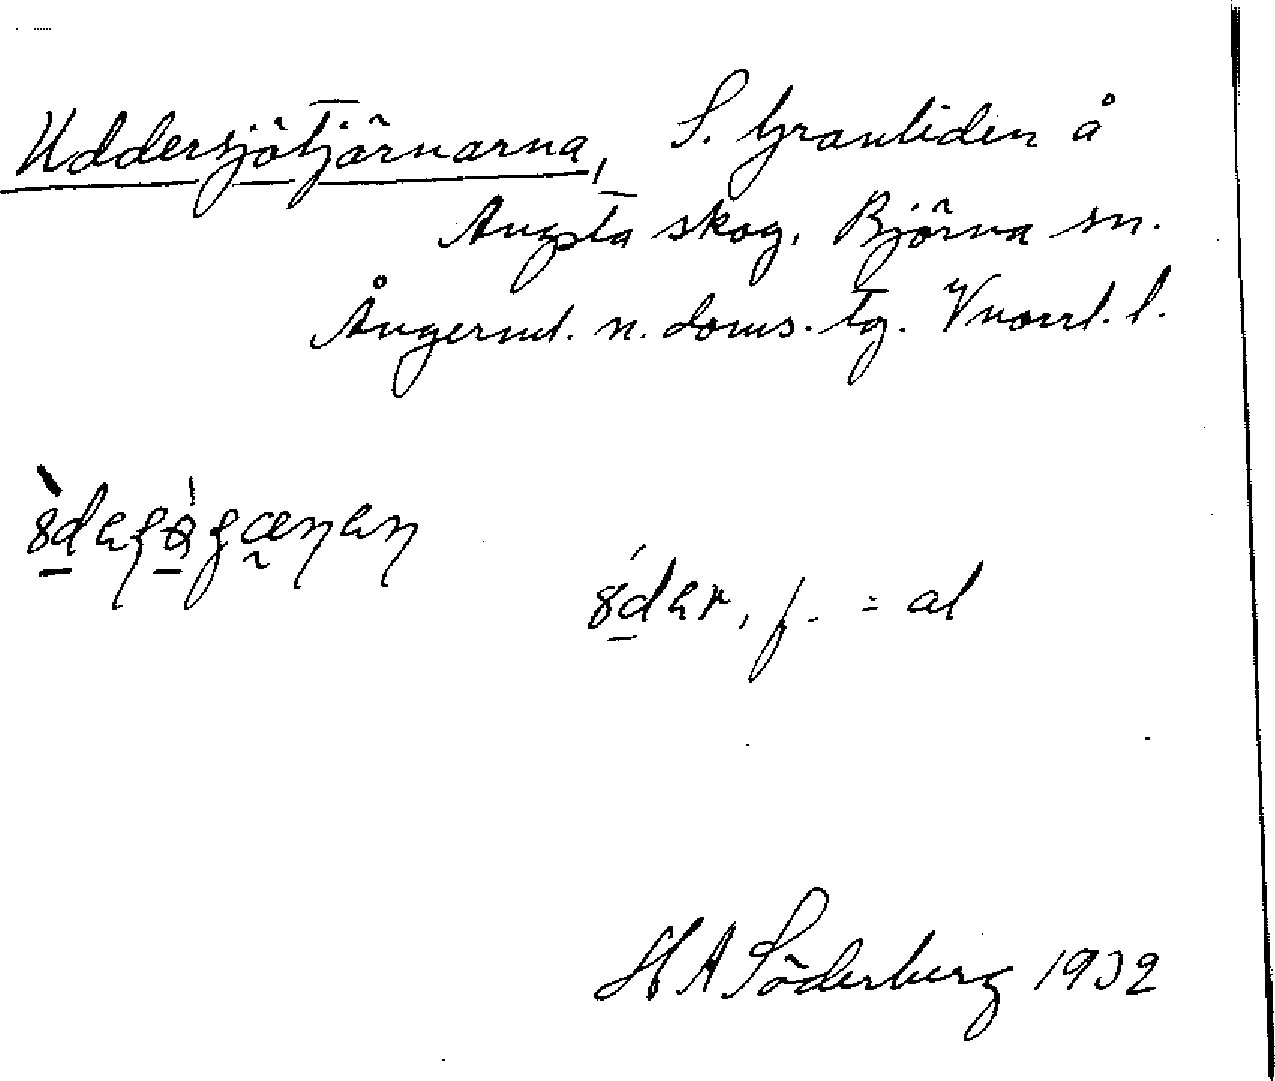 Uddersjötjärnarna, S. Granliden å
Angsta skog, Björna sn.
Ångerml. n. doms. tg. Vnorrl. l.
, f. = al
H A Söderberg 1932